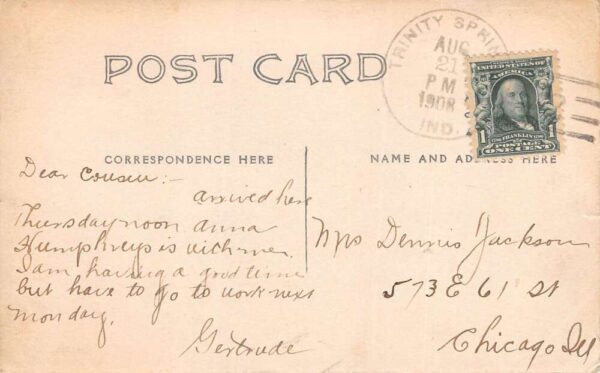 POST CARD
TRINITY SPRIN
AUG
21
PM
1908
IND.
UNITED STATES OF
AMERICA
1 FRANKLIN 1
POSTAGE
ONE CENT
CORRESPONDENCE HERE
Dear Cousin:-
arrived here
Thursday noon Anna
Humphreys is with me.
I am having a good time
but have to go to work next
monday.
Gertrude
NAME AND ADDRESS HERE
Mrs Dennis Jackson
573 E 61 St
Chicago Ill